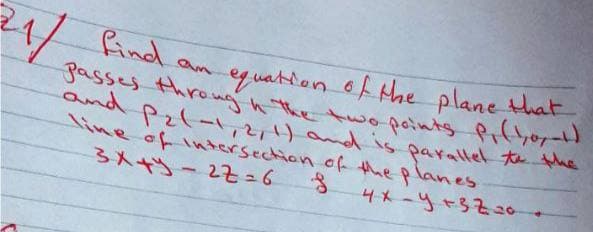 21/ Find an equation of the plane that
passes through the two points P₁(1,0,-1)
and P2(-1,2,1) and is parallel to the
line of intersection of the planes
3x+y-2z=6 & 4x-y+3z=0.